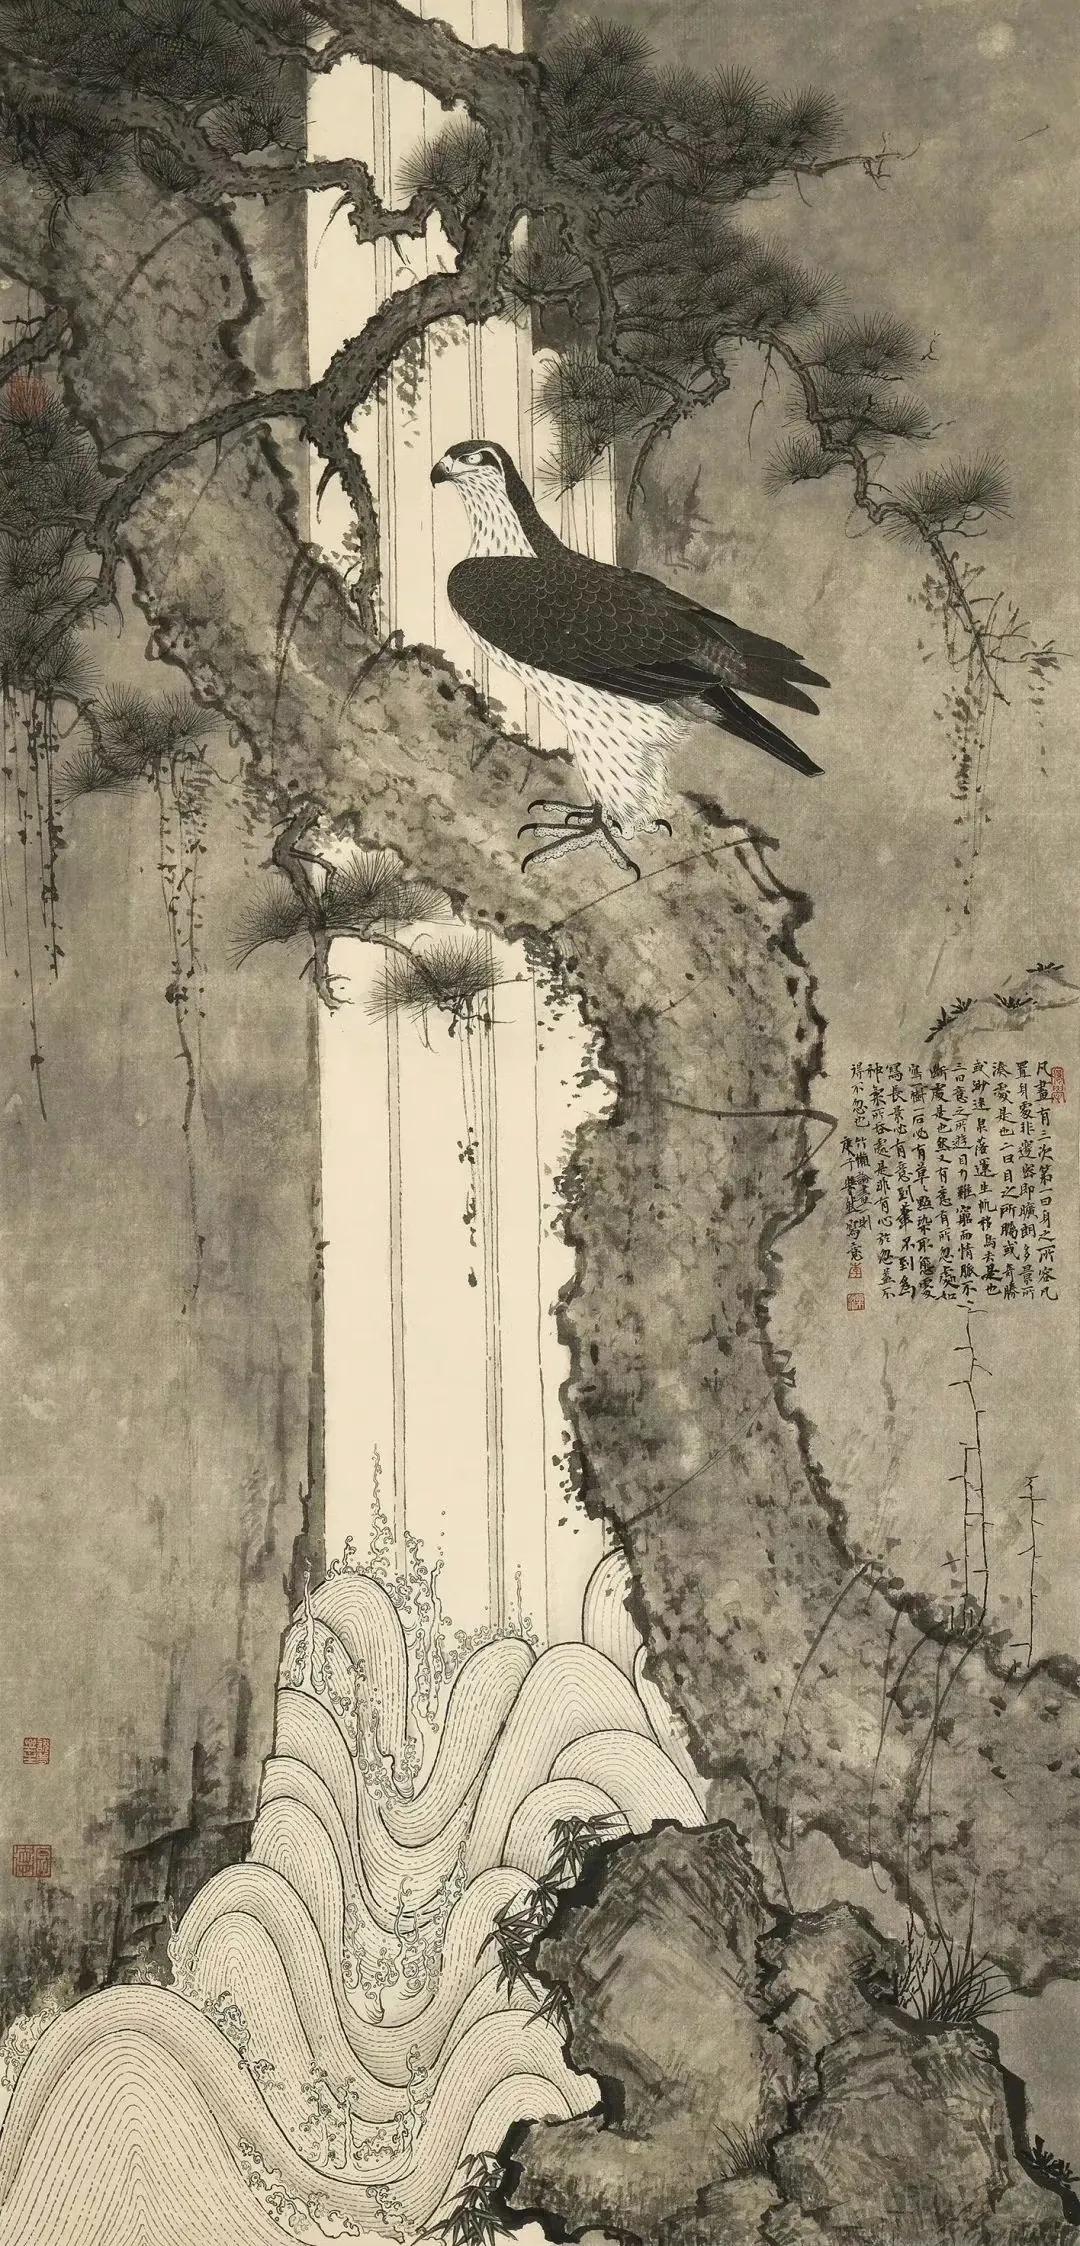 凡畫有三次第一曰身之所容凡
置身處非邃密即曠朗多景所
湊處是也二曰目之所矚或奇勝
或渺迷泉落雲生帆移鳥去是也
三曰意之所游目力雖窮而情脈不
斷處是也然又有意有所忽處如
寫一樹一石必有草々點染取態處
寫長景必有意到筆不到為
神氣所吞處是非有心於忽蓋不
得不忽也 竹懶論畫一則
庚子 寫意